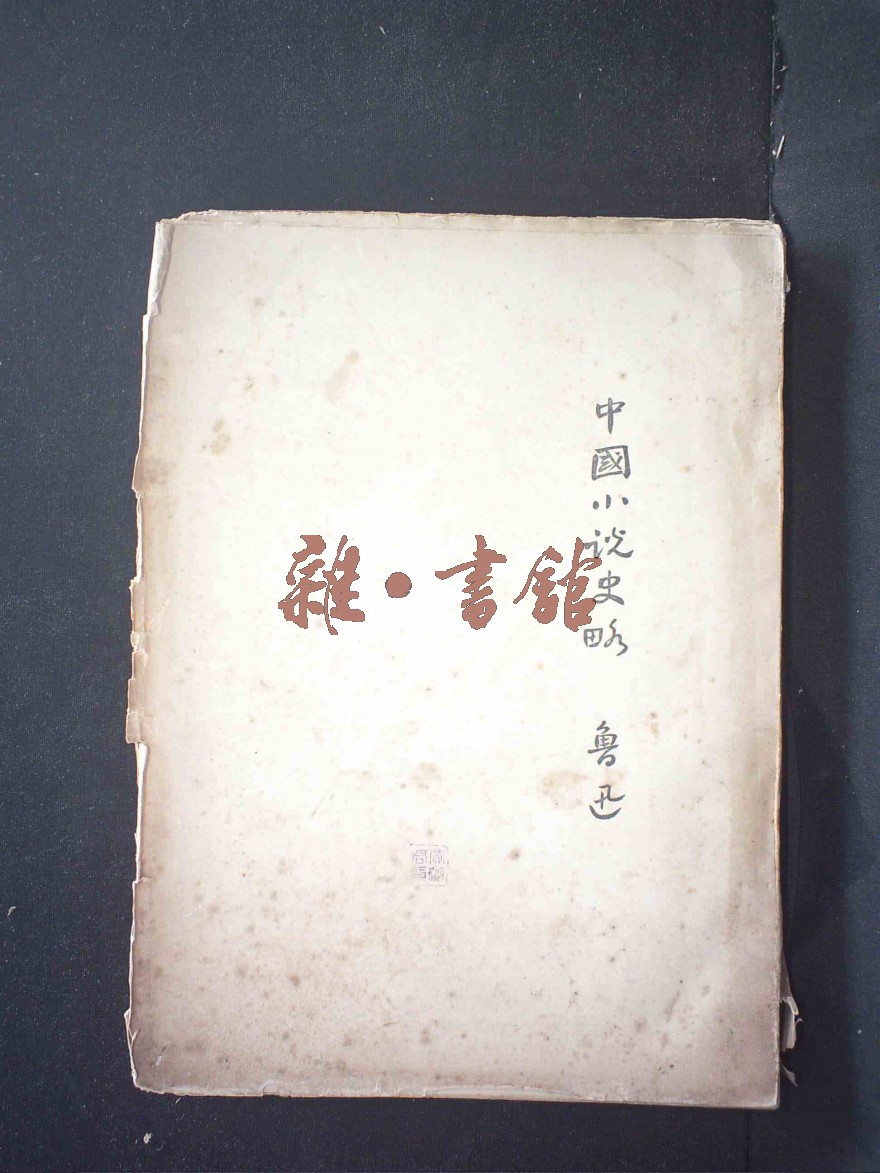 中國小说史略 魯迅
雜·書舘